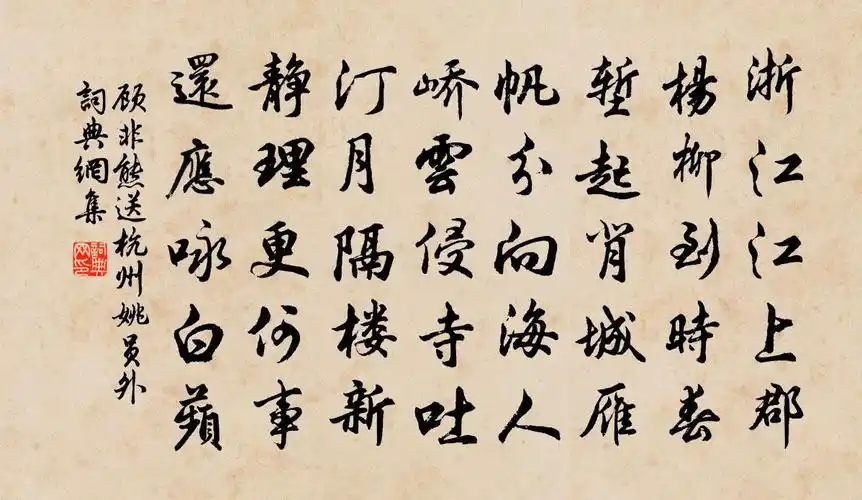 浙江江上郡
楊柳到時春
塹起背城雁
帆分向海人
嶠雲侵寺吐
汀月隔楼新
静理更何事
還應咏白蘋
顾非熊送杭州姚员外
詞典網集
詞典